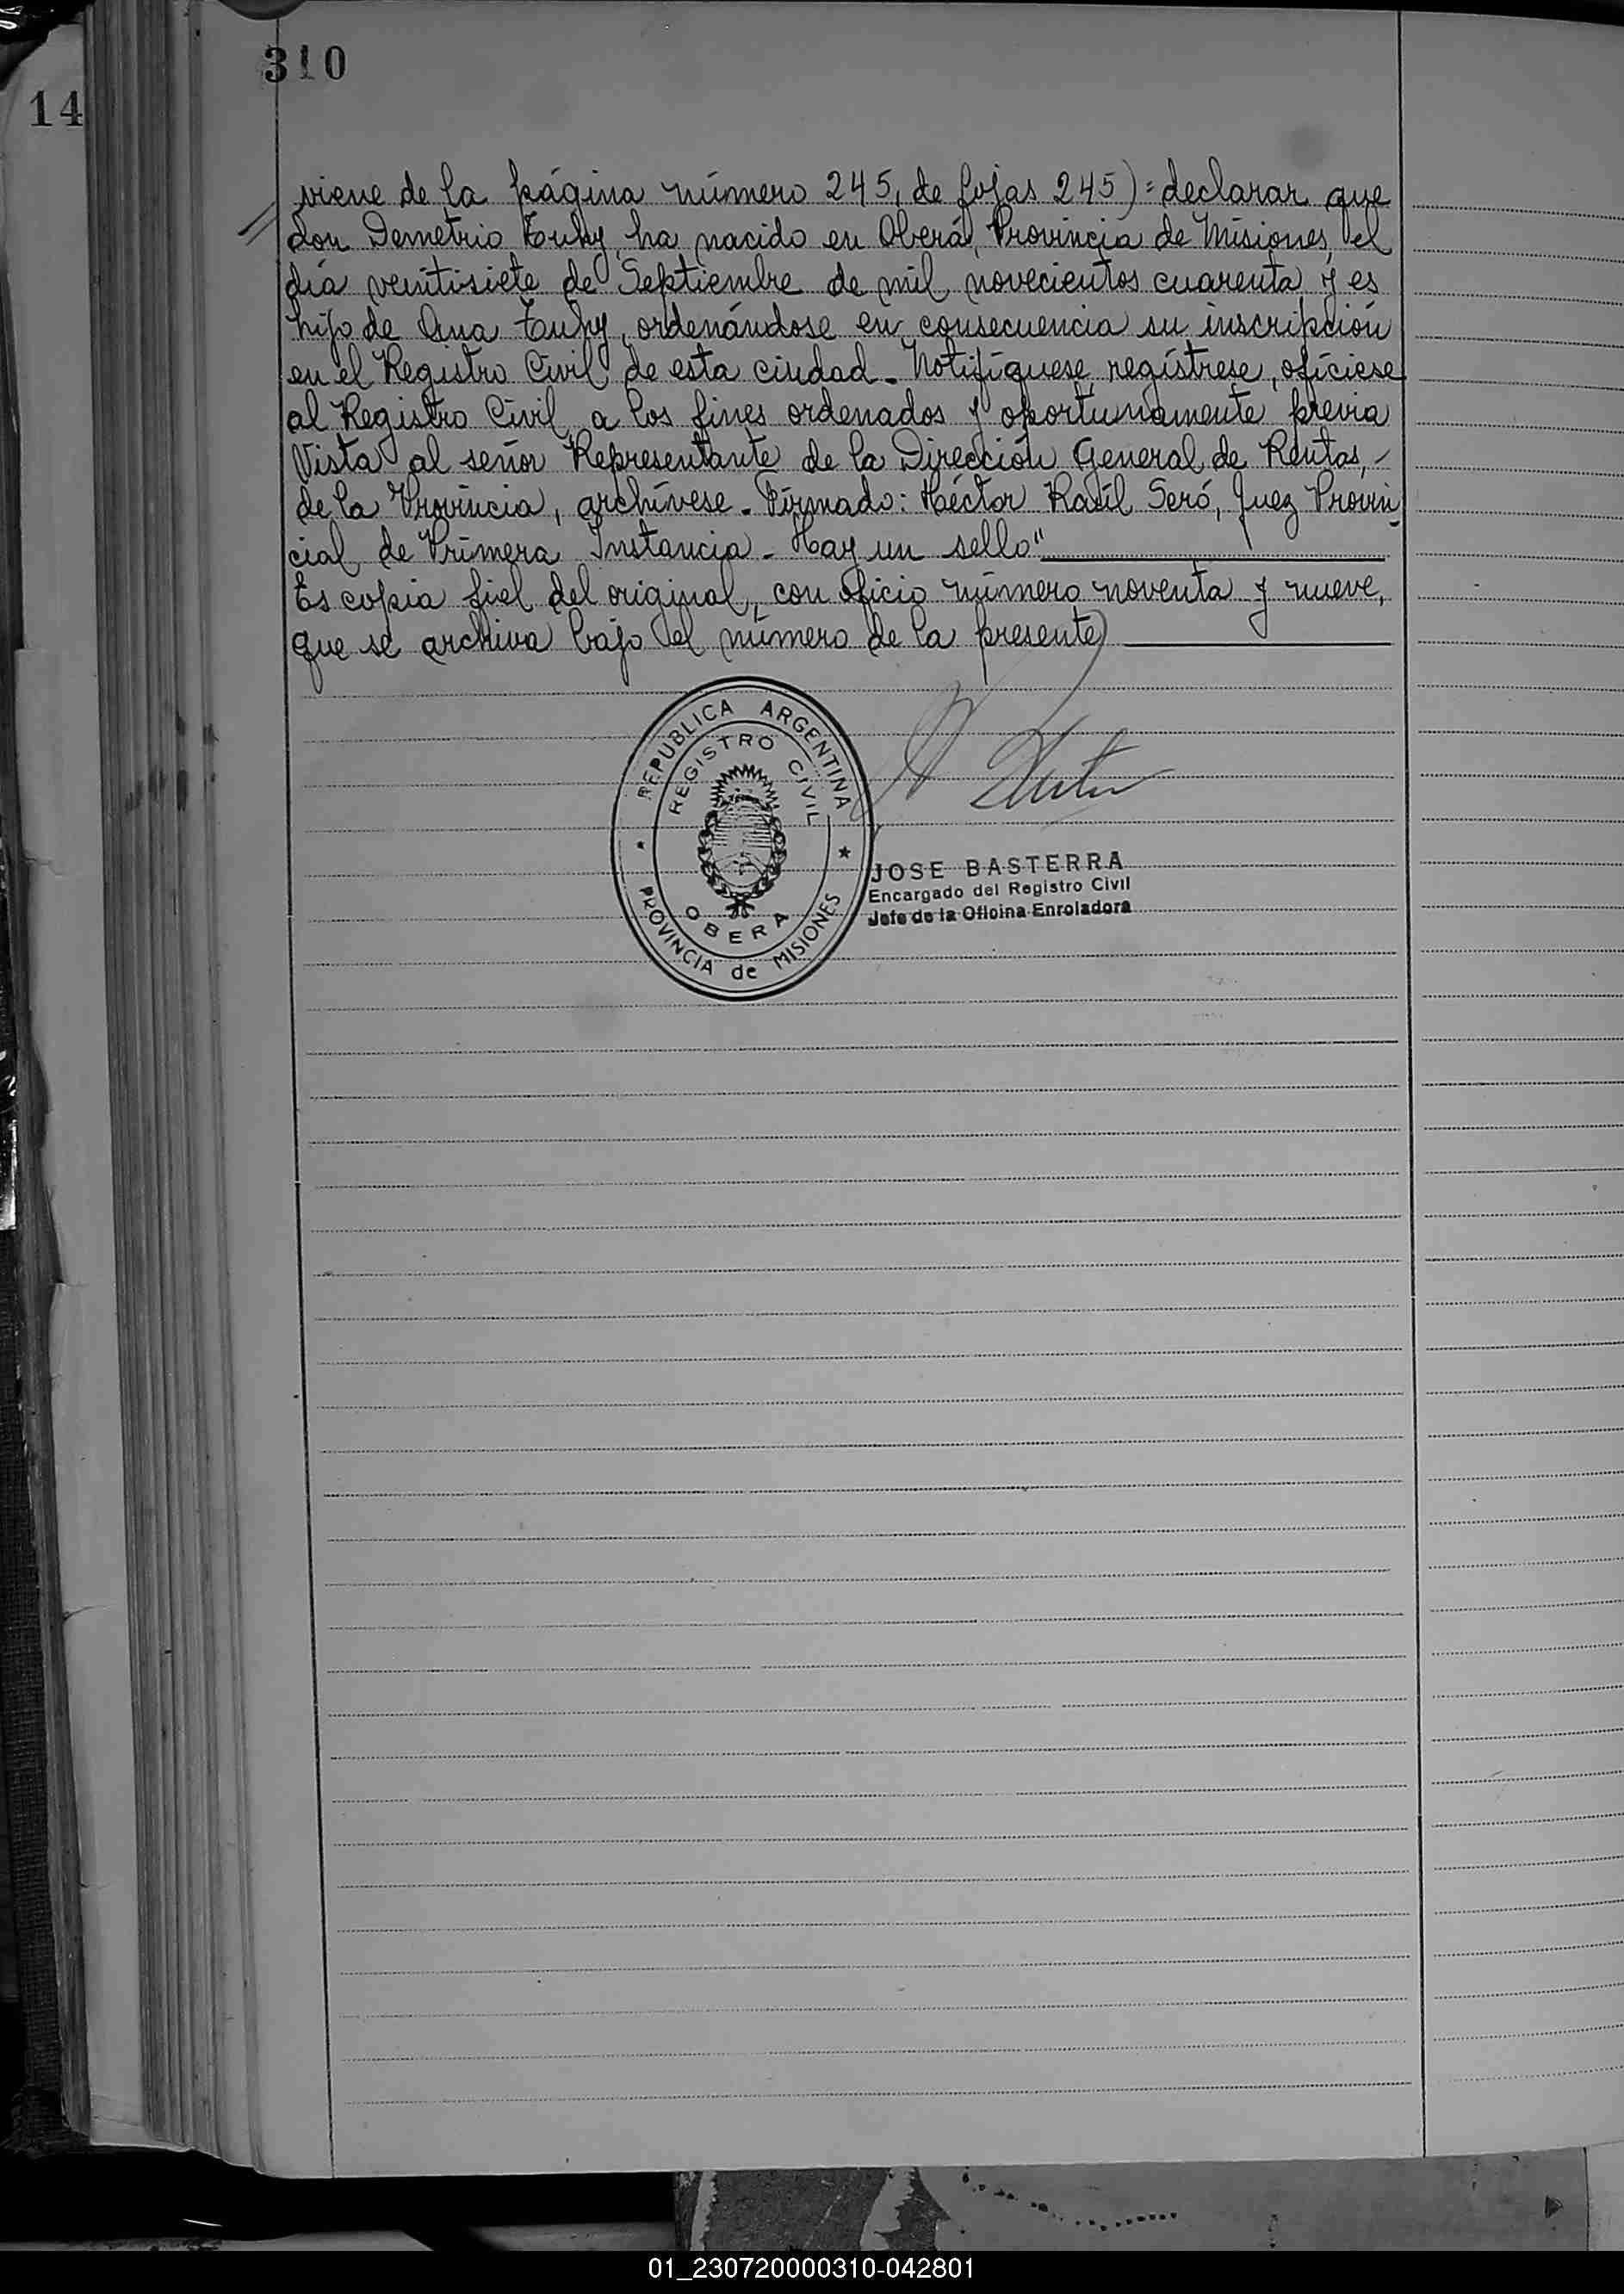 310
14
viene de la página número 245, de fojas 245)= declarar que
don Demetrio Tuhy, ha nacido en Oberá, Provincia de Misiones, el
día veintisiete de Septiembre de mil novecientos cuarenta y es
hijo de Ana Tuhy, ordenándose en consecuencia su inscripción
en el Registro Civil de esta ciudad. Notifíquese, regístrese, ofíciese
al Registro Civil, a los fines ordenados y oportunamente previa
Vista al señor Representante de la Dirección General de Rentas,-
de la Provincia, archívese. Firmado: Héctor Raúl Seró, Juez Provin
cial de Primera Instancia. Hay un sello"
Es copia fiel del original, con oficio número noventa y nueve,
que se archiva bajo el número de la presente
REPUBLICA ARGENTINA
REGISTRO CIVIL
OBERA
PROVINCIA de MISIONES
JOSE BASTERRA
Encargado del Registro Civil
Jefe de la Oficina Enroladora
01_230720000310-042801